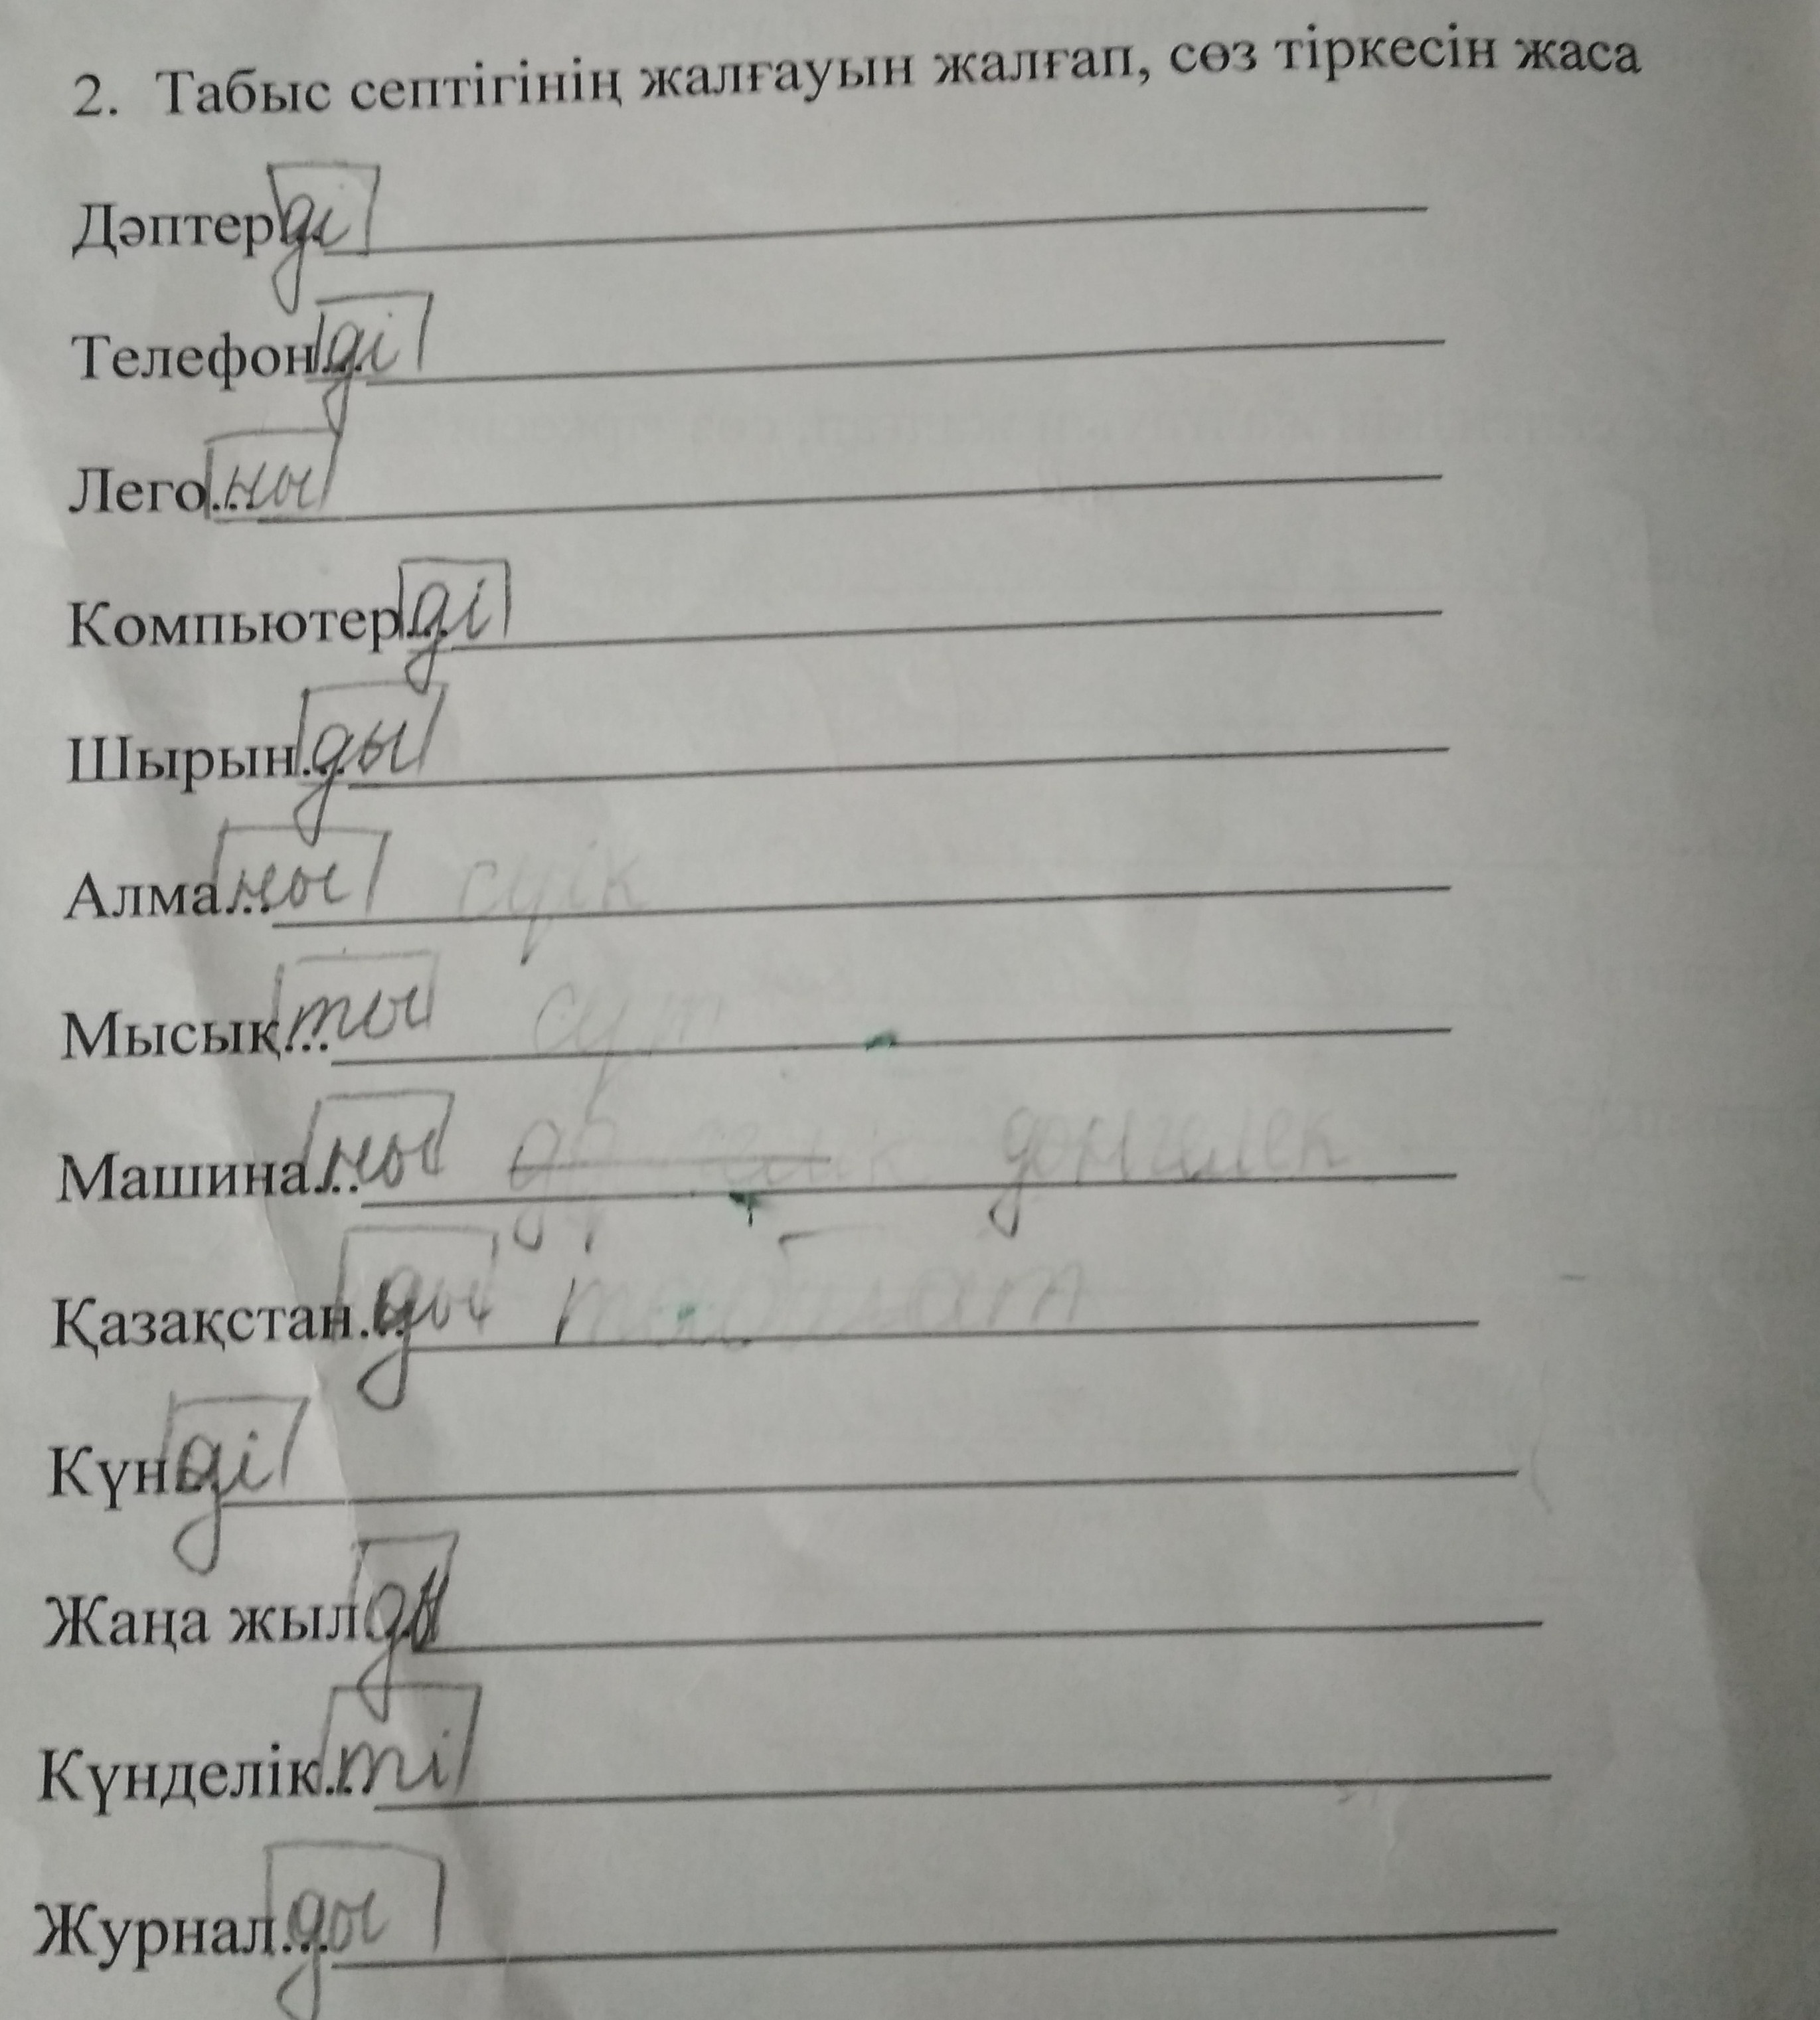 2. Табыс септігінің жалғауын жалғап, сөз тіркесін жаса
Дәптер ді
Телефон ді
Лего... ны
Компьютер... ді
Шырын... ды
Алма... ны суік
Мысық... ты сүт
Машина... ны домгелек
Қазақстан... ды
Күн... ді
Жаңа жыл ды
Күнделік... ті
Журнал... ды